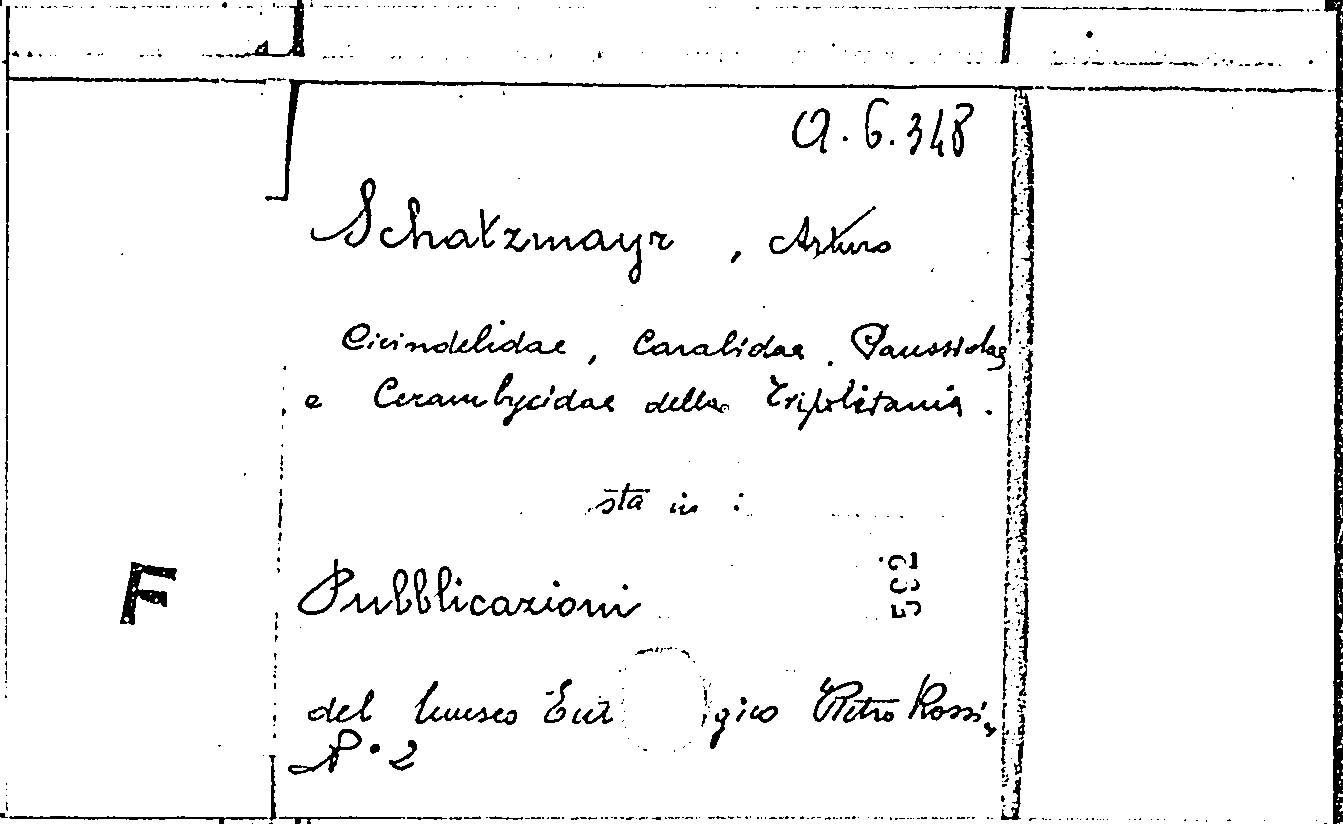 a.6.348
Schatzmayr, Arturo
Cicindelidae, Carabidae. Paussidae
e Cerambycidae della Tripolitania.
sta in :
592
F
Pubblicazioni
del Museo Ent gico Pietro Rossi,
N° 2